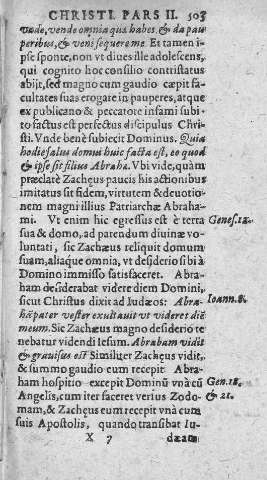 CHRISTI. PARS II. 503
vade, vende omnia quæ habes, & da pau
peribus, & veni sequere me. Et tamen i-
pse sponte, non vt diues ille adolescens,
qui cognito hoc consilio contristatus
abijt, sed magno cum gaudio cæpit fa-
cultates suas erogare in pauperes, atque
ex publicano & peccatore infami subi-
to factus est perfectus discipulus Chri-
sti. Vnde benè subiecit Dominus. Quia
hodie salus domui huic facta est, eo quod
& ipse sit filius Abrahæ. Vbi vide, quàm
præclarè Zachęus paucis his actionibus
imitatus sit fidem, virtutem & deuotio-
nem magni illius Patriarchæ Abraha-
mi. Vt enim hic egressus est è terra
Genes. 12.
sua & domo, ad patendum diuinæ vo-
luntati, sic Zachæus reliquit domum
suam, aliaque omnia, vt desiderio sibi à
Domino immisso satisfaceret. Abra-
ham desiderabat videre diem Domini,
sicut Christus dixit ad Iudæos: Abra-
Ioann. 8.
ha pater vester exultauit vt videret diē
meum. Sic Zachæus magno desiderio te
nebatur videndi Iesum. Abraham vidit
& grauisus est Similiter Zachęus vidit,
& summo gaudio eum recepit Abra-
ham hospitio excepit Dominū vnà cū
Gen. 18.
Angelis, cum iter faceret versus Zodo-
& 21.
mam, & Zachęus eum recepit vnà cum
suis Apostolis, quando transibat Iu-
X 7
dæam